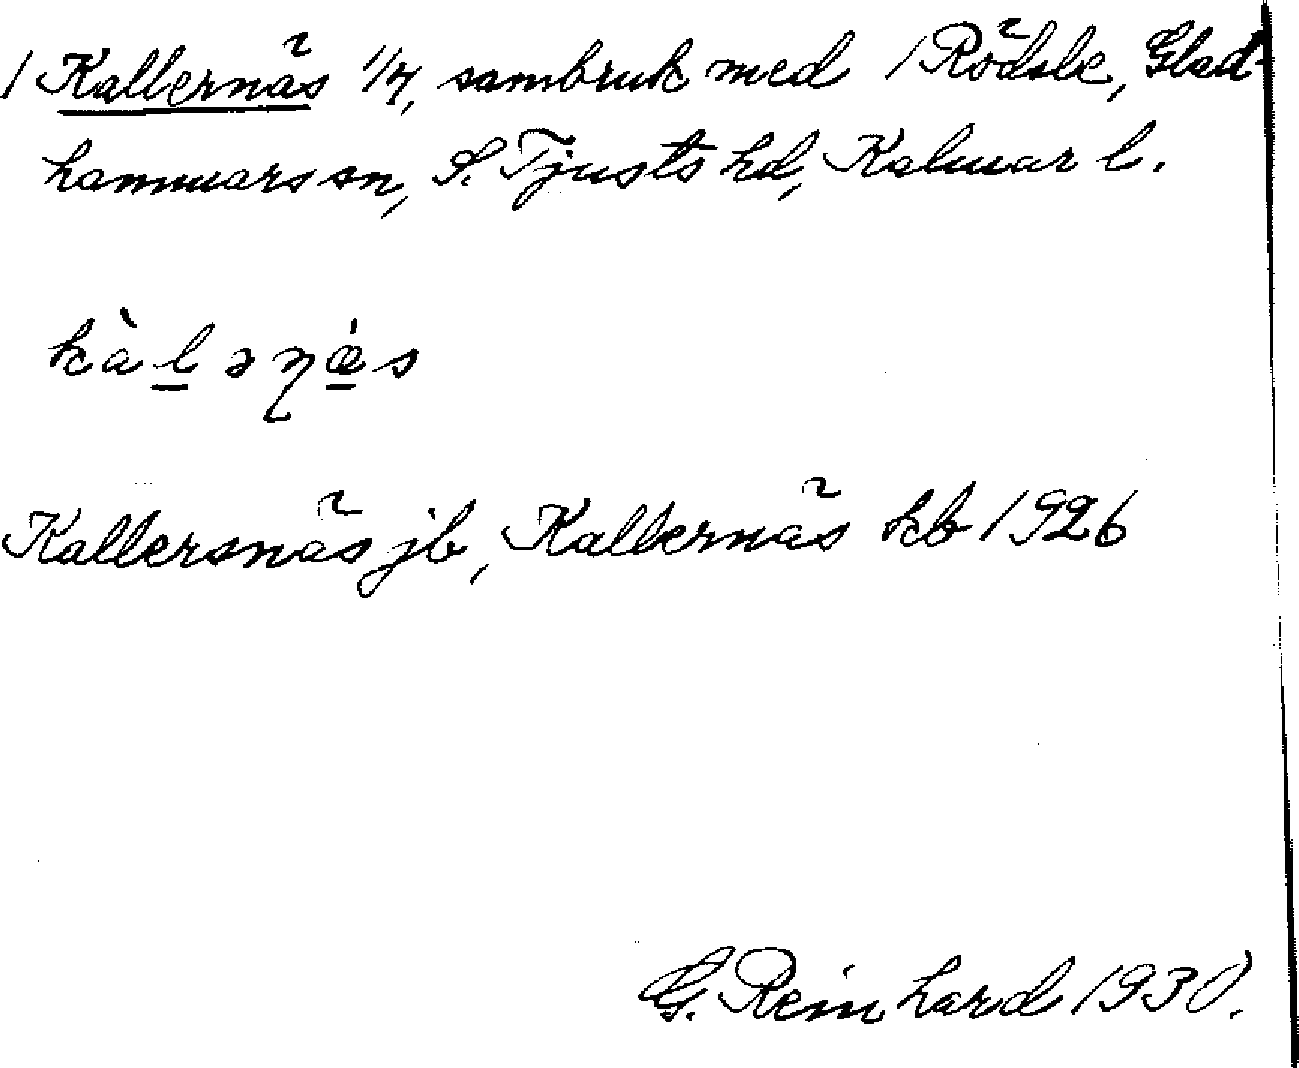 1 Kallernäs 1/4, sambruk med 1 Rödsle, Glad-
hammars sn, S. Tjusts hd, Kalmar l.
kàləɳǽs
Kallersnäs jb, Kallernäs kb 1926
G. Reinhard 1930.